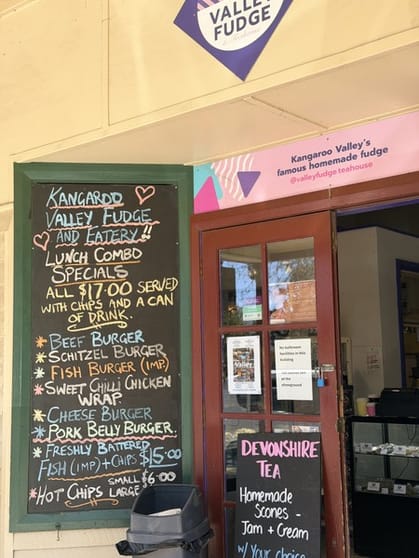 VALLEY
FUDGE
Kangaroo Valley's
famous homemade fudge
@valleyfudgeteahouse
KANGAROO
VALLEY FUDGE
AND EATERY!!
LUNCH COMBO
SPECIALS
ALL $17.00 SERVED
WITH CHIPS AND A CAN
OF DRINK.
BEEF BURGER
SCHITZEL BURGER
FISH BURGER (IMP)
SWEET CHILLI CHICKEN
WRAP
CHEESE BURGER
PORK BELLY BURGER.
FRESHLY BATTERED
FISH (IMP) + CHIPS $15.00
HOT CHIPS SMALL $6.00
LARGE
No bathroom
facilities in this
building
DEVONSHIRE
TEA
Homemade
Scones -
Jam + Cream
w/ Your choice